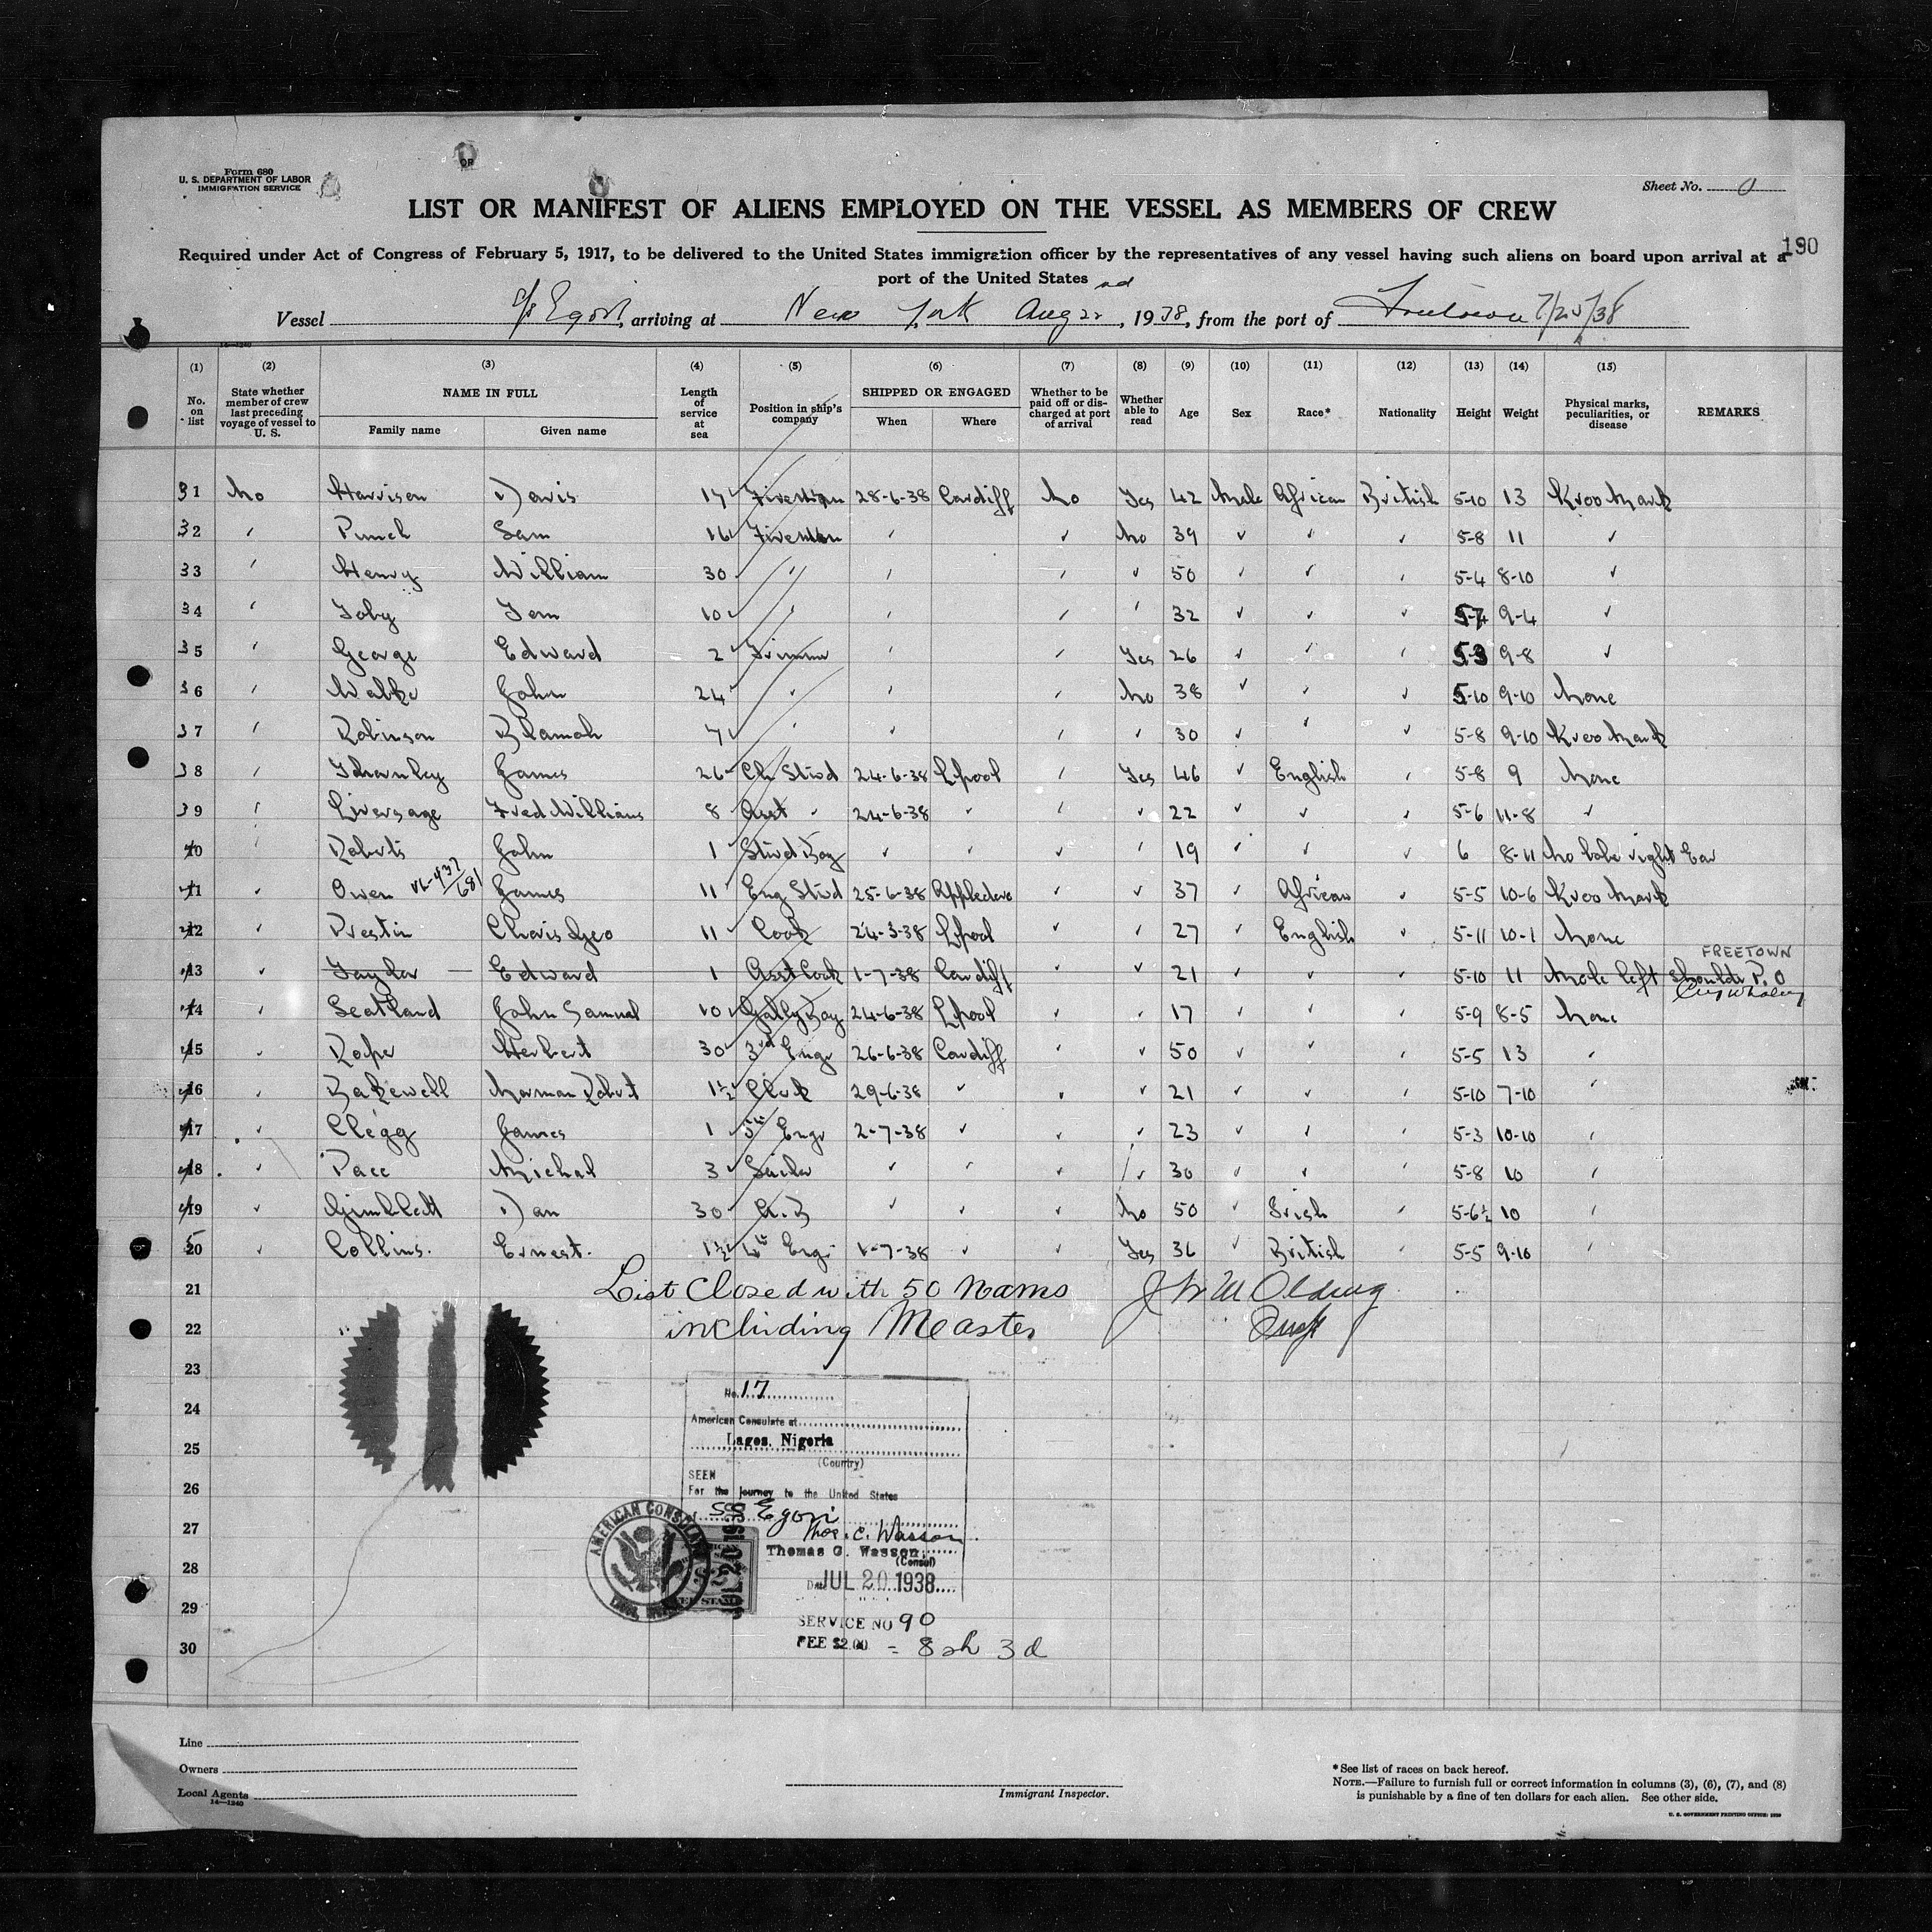 Form 680
U. S. DEPARTMENT OF LABOR
IMMIGRATION SERVICE
OR
Sheet No.
LIST OR MANIFEST OF ALIENS EMPLOYED ON THE VESSEL AS MEMBERS OF CREW
190
Required under Act of Congress of February 5, 1917, to be delivered to the United States immigration officer by the representatives of any vessel having such aliens on board upon arrival at a
port of the United States
Vessel S/S Egori, arriving at New York Aug 22 nd, 1938, from the port of Freetown 7/25/38
(1) (2) (3) (4) (5) (6) (7) (8) (9) (10) (11) (12) (13) (14) (15)
No. on list State whether member of crew last preceding voyage of vessel to U. S. NAME IN FULL Length of service at sea Position in ship's company SHIPPED OR ENGAGED Whether to be paid off or discharged at port of arrival Whether able to read Age Sex Race* Nationality Height Weight Physical marks, peculiarities, or disease REMARKS
Family name Given name When Where
31 No Harrison Davis 17 Fireman 28-6-38 Cardiff No Yes 42 Male African British 5-10 13 Kroo Mark
32 " Punch Sam 16 Fireman " " No 39 ✓ " ✓ 5-8 11 ✓
33 " Henry William 30 " " " ✓ 50 ✓ ✓ ✓ 5-4 8-10 ✓
34 " Toby Jem 10 " " " " 32 ✓ ✓ ✓ 5-7 9-4 ✓
35 " George Edward 2 Trimmer " " Yes 26 ✓ " " 5-3 9-8 ✓
36 " John 24 " " " No 38 ✓ " ✓ 5-10 9-10 None
37 " Robinson Blamoh 7 " " " ✓ 30 ✓ " ✓ 5-8 9-10 Kroo Mark
38 " Thornley James 26 Ch Stwd 24-6-38 L'pool " Yes 46 ✓ English " 5-8 9 None
39 " Liversage Fred William 8 Asst " 24-6-38 " " ✓ 22 ✓ ✓ ✓ 5-6 11-8 ✓
40 " Roberts John 1 Stwd Boy ✓ " ✓ " 19 ✓ " ✓ 6 8-11 No lobe right Ear
41 ✓ Owen James 11 Eng Stwd 25-6-38 ✓ ✓ 37 " African ✓ 5-5 10-6 Kroo Mark
42 ✓ Preston Charis Geo 11 Cook 24-3-38 L'pool ✓ ✓ 27 ✓ English ✓ 5-11 10-1 None
FREETOWN
43 ✓ Taylor Edward 1 Asst Cook 1-7-38 Cardiff ✓ ✓ 21 ✓ ✓ ✓ 5-10 11 Mole left shoulder P. O
44 ✓ Seatland John Samual 10 Gally Boy 24-6-38 L'pool ✓ ✓ 17 ✓ ✓ ✓ 5-9 8-5 None
45 ✓ Roper Herbert 30 3rd Engr 26-6-38 Cardiff ✓ ✓ 50 ✓ " ✓ 5-5 13 "
46 ✓ Bakewell Norman Robert 1½ Clerk 29-6-38 ✓ ✓ ✓ 21 ✓ ✓ ✓ 5-10 7-10 "
47 ✓ Clegg James 1 5th Engr 2-7-38 ✓ ✓ ✓ 23 ✓ ✓ ✓ 5-3 10-10 "
48 ✓ Pace Michal 3 Sailor ✓ ✓ ✓ ✓ 30 ✓ ✓ ✓ 5-8 10 "
49 ✓ Gimblett Dan 30 A.B ✓ ✓ ✓ No 50 ✓ Irish ✓ 5-6½ 10 "
50 ✓ Collins. Ernest. 1½ 4th Engr 1-7-38 ✓ ✓ Yes 36 ✓ British ✓ 5-5 9-10 "
21 List Closed with 50 Names
22 including Measter
23
24
25
26
27
28
29
30
No. 17
American Consulate at
Lagos, Nigeria
(Country)
SEEN
For the journey to the United States
SS Egori
Thos. C. Wasson
Thomas C. Wasson
(Consul)
Date JUL 20 1938
AMERICAN CONSULATE
JUL 20 1938
SERVICE NO 90
FEE $2.00 = 8 sh 3 d
Line
Owners
Local Agents
14—1240
Immigrant Inspector.
* See list of races on back hereof.
NOTE.—Failure to furnish full or correct information in columns (3), (6), (7), and (8)
is punishable by a fine of ten dollars for each alien. See other side.